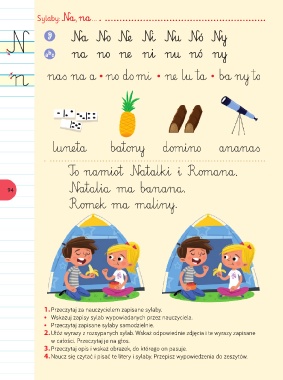 Sylaby: Na, na...
N
Na No Ne Ni Nu Nó Ny
n
na no ne ni nu nó ny
nas na a • no do mi • ne lu ta • ba ny to
luneta batony domino ananas
To namiot Natalki i Romana.
Natalia ma banana.
Romek ma maliny.
94
1. Przeczytaj za nauczycielem zapisane sylaby.
• Wskazuj zapisy sylab wypowiadanych przez nauczyciela.
• Przeczytaj zapisane sylaby samodzielnie.
2. Ułóż wyrazy z rozsypanych sylab. Wskaż odpowiednie zdjęcia i te wyrazy zapisane
w całości. Przeczytaj je na głos.
3. Przeczytaj opis i wskaż obrazek, do którego on pasuje.
4. Naucz się czytać i pisać te litery i sylaby. Przepisz wypowiedzenia do zeszytów.